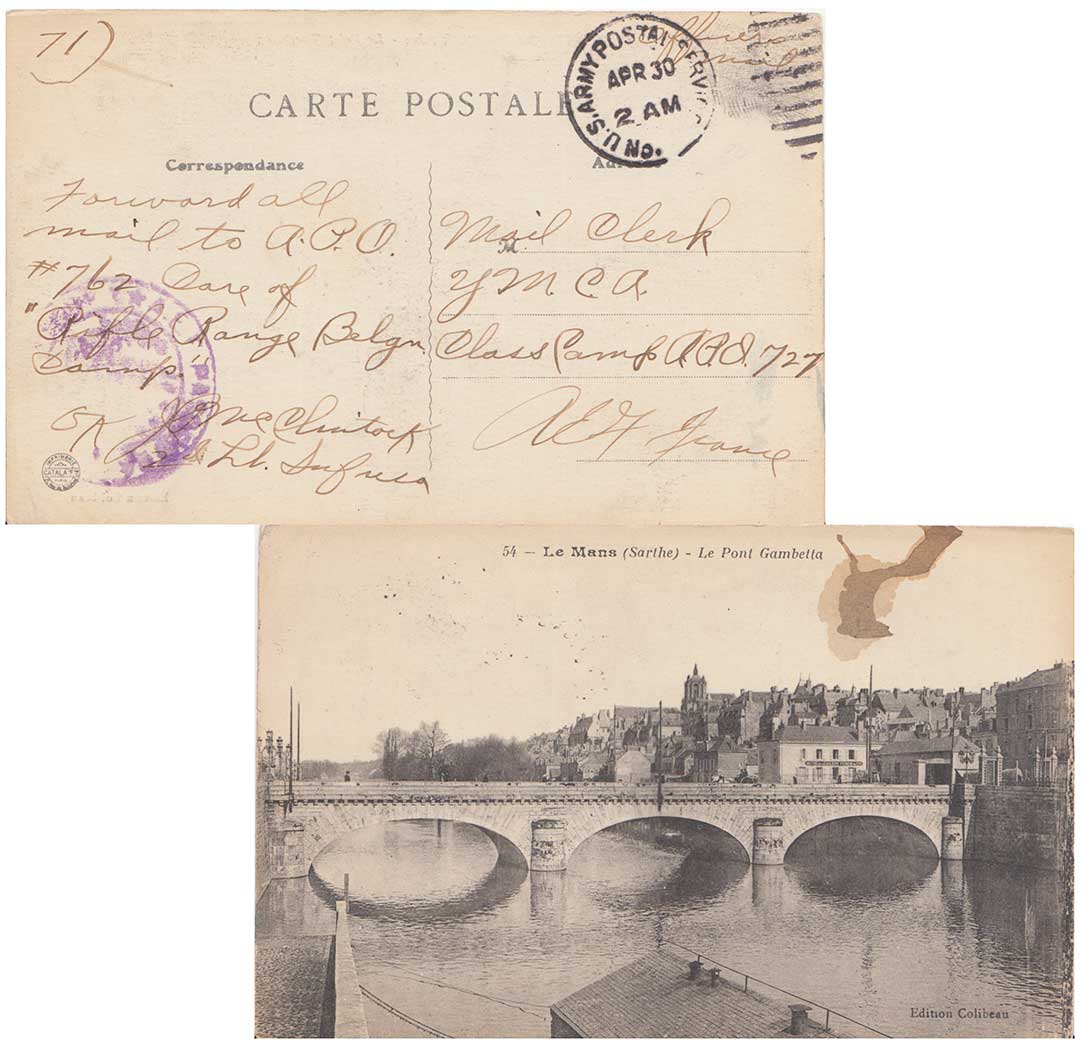 71)
Officers
mail
U.S. ARMY POSTAL SERVICE
APR 30
2 AM
CARTE POSTALE
Correspondance
Forward all
mail to A.P.O.
#762 Care of
"Rifle Range Belgn
Camp."
OK J McClintock
2d Lt. Inf USA
Mail Clerk
M.
Y.M.C.A.
Class Camp A.P.O. 727
AEF France
IMPRIMERIE
CATALA Fres
PARIS
54 — Le Mans (Sarthe) - Le Pont Gambetta
Edition Colibeau